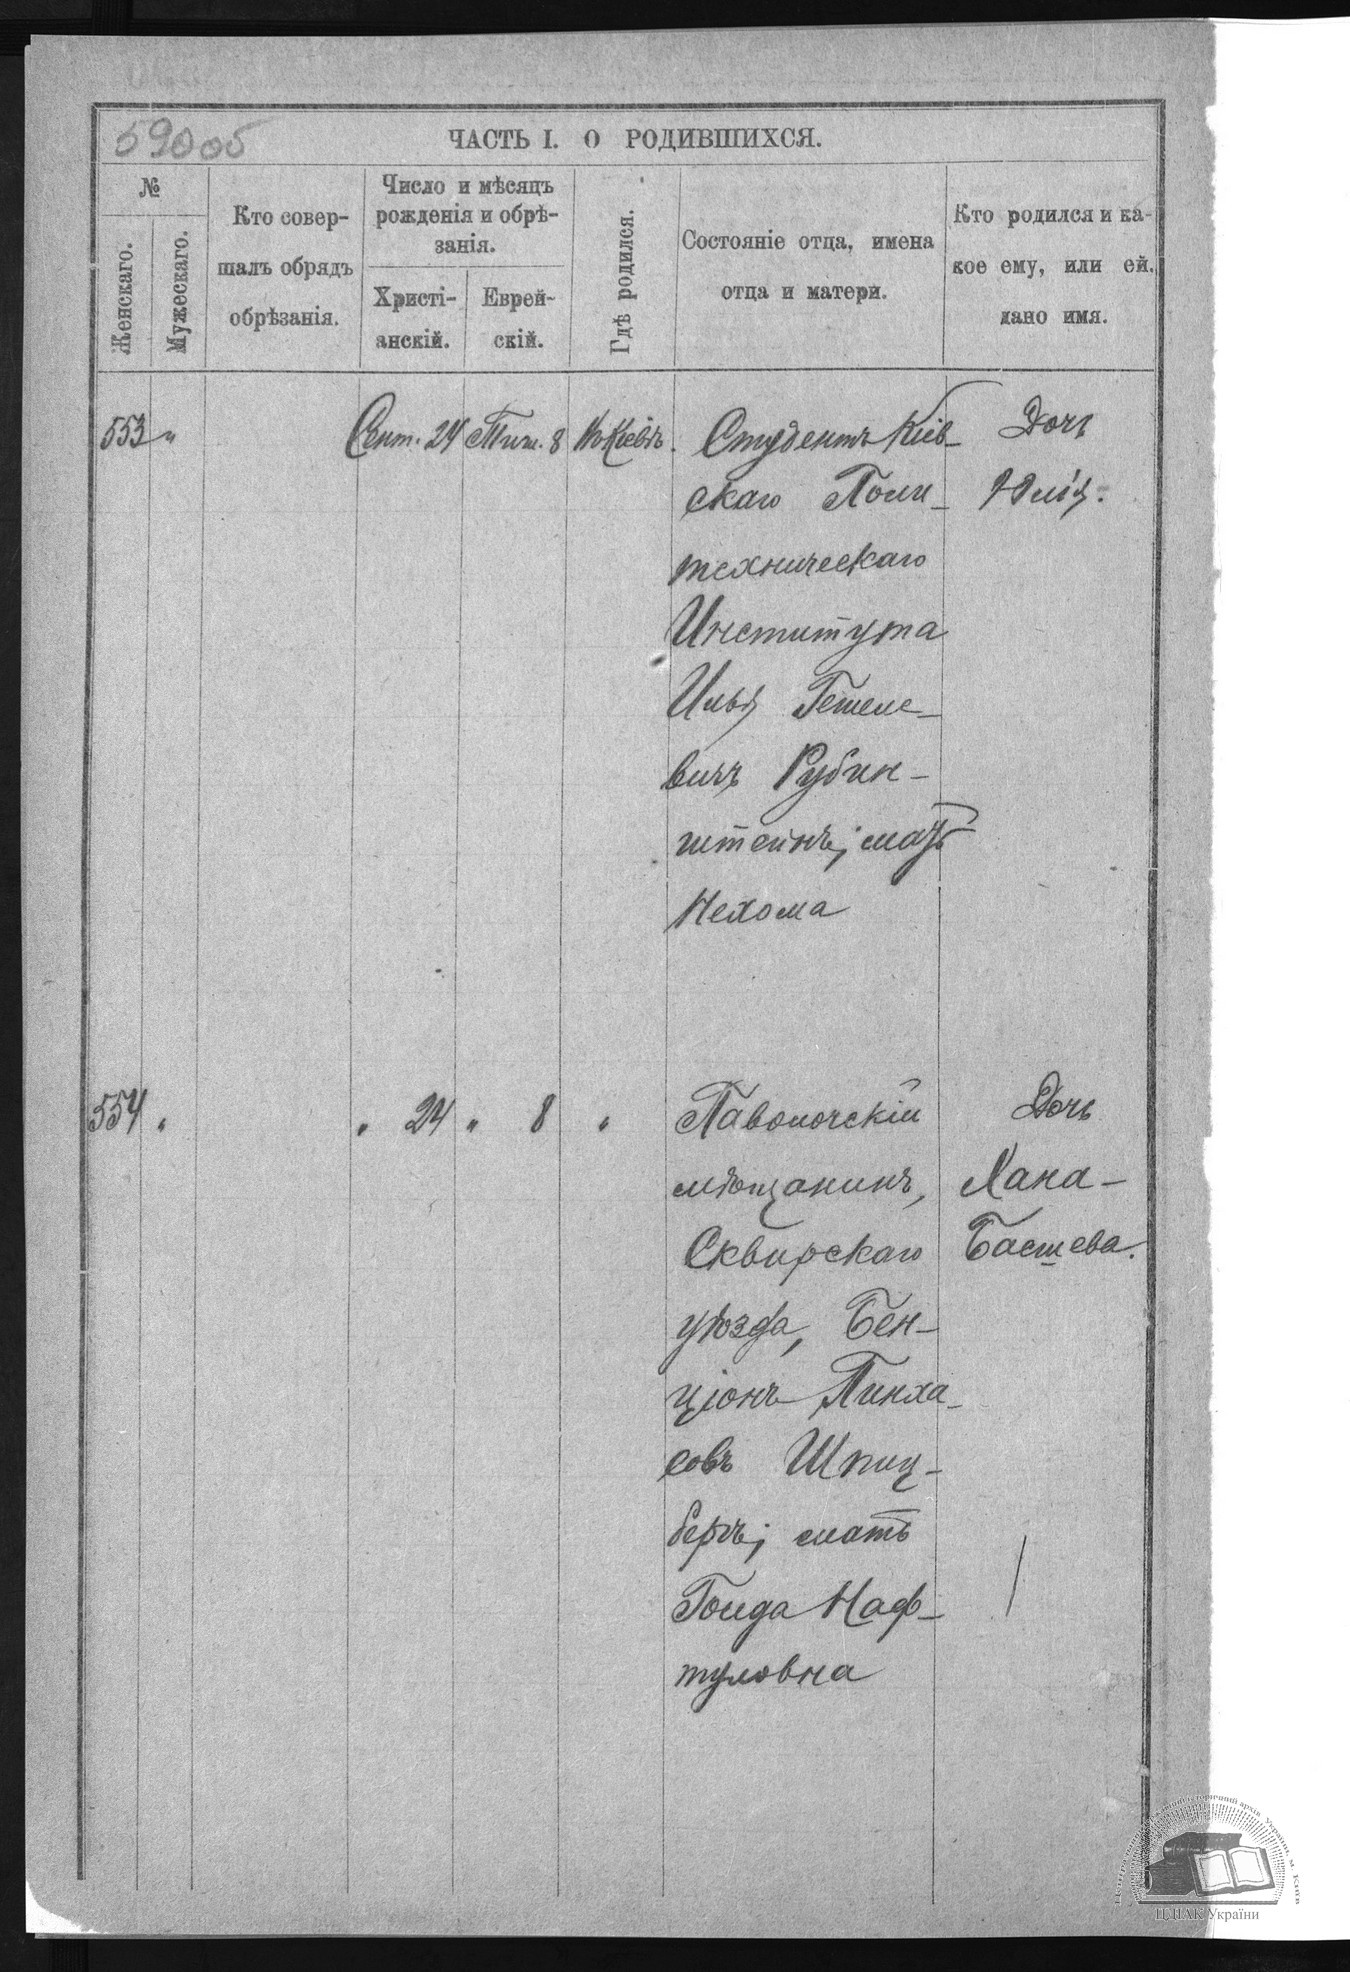 590об
ЧАСТЬ I. О РОДИВШИХСЯ.
№
Женскаго.
Мужескаго.
Кто совер-
шалъ обрядъ
обрѣзанія.
Число и мѣсяцъ
рожденія и обрѣ-
занія.
Христі-
анскій.
Еврей-
скій.
Гдѣ родился.
Состояніе отца, имена
отца и матери.
Кто родился и ка-
кое ему, или ей.
дано имя.
553 "
Сент. 24
Тиш. 8
Въ Кіевѣ.
Студентъ Кіев-
скаго Поли-
техническаго
Института
Илья Гешеле-
вичъ Рубин-
штейнъ; мать
Нехома
Дочь
Юлія.
554 "
" 24
" 8
"
Паволочскій
мѣщанинъ,
Сквирскаго
уѣзда, Бен-
ціонъ Пинха-
совъ Шпиц-
бергъ; мать
Голда Наф-
туловна
Дочь
Хана-
Басшева.
Центральний державний історичний архів України, м. Київ
ЦДІАК України